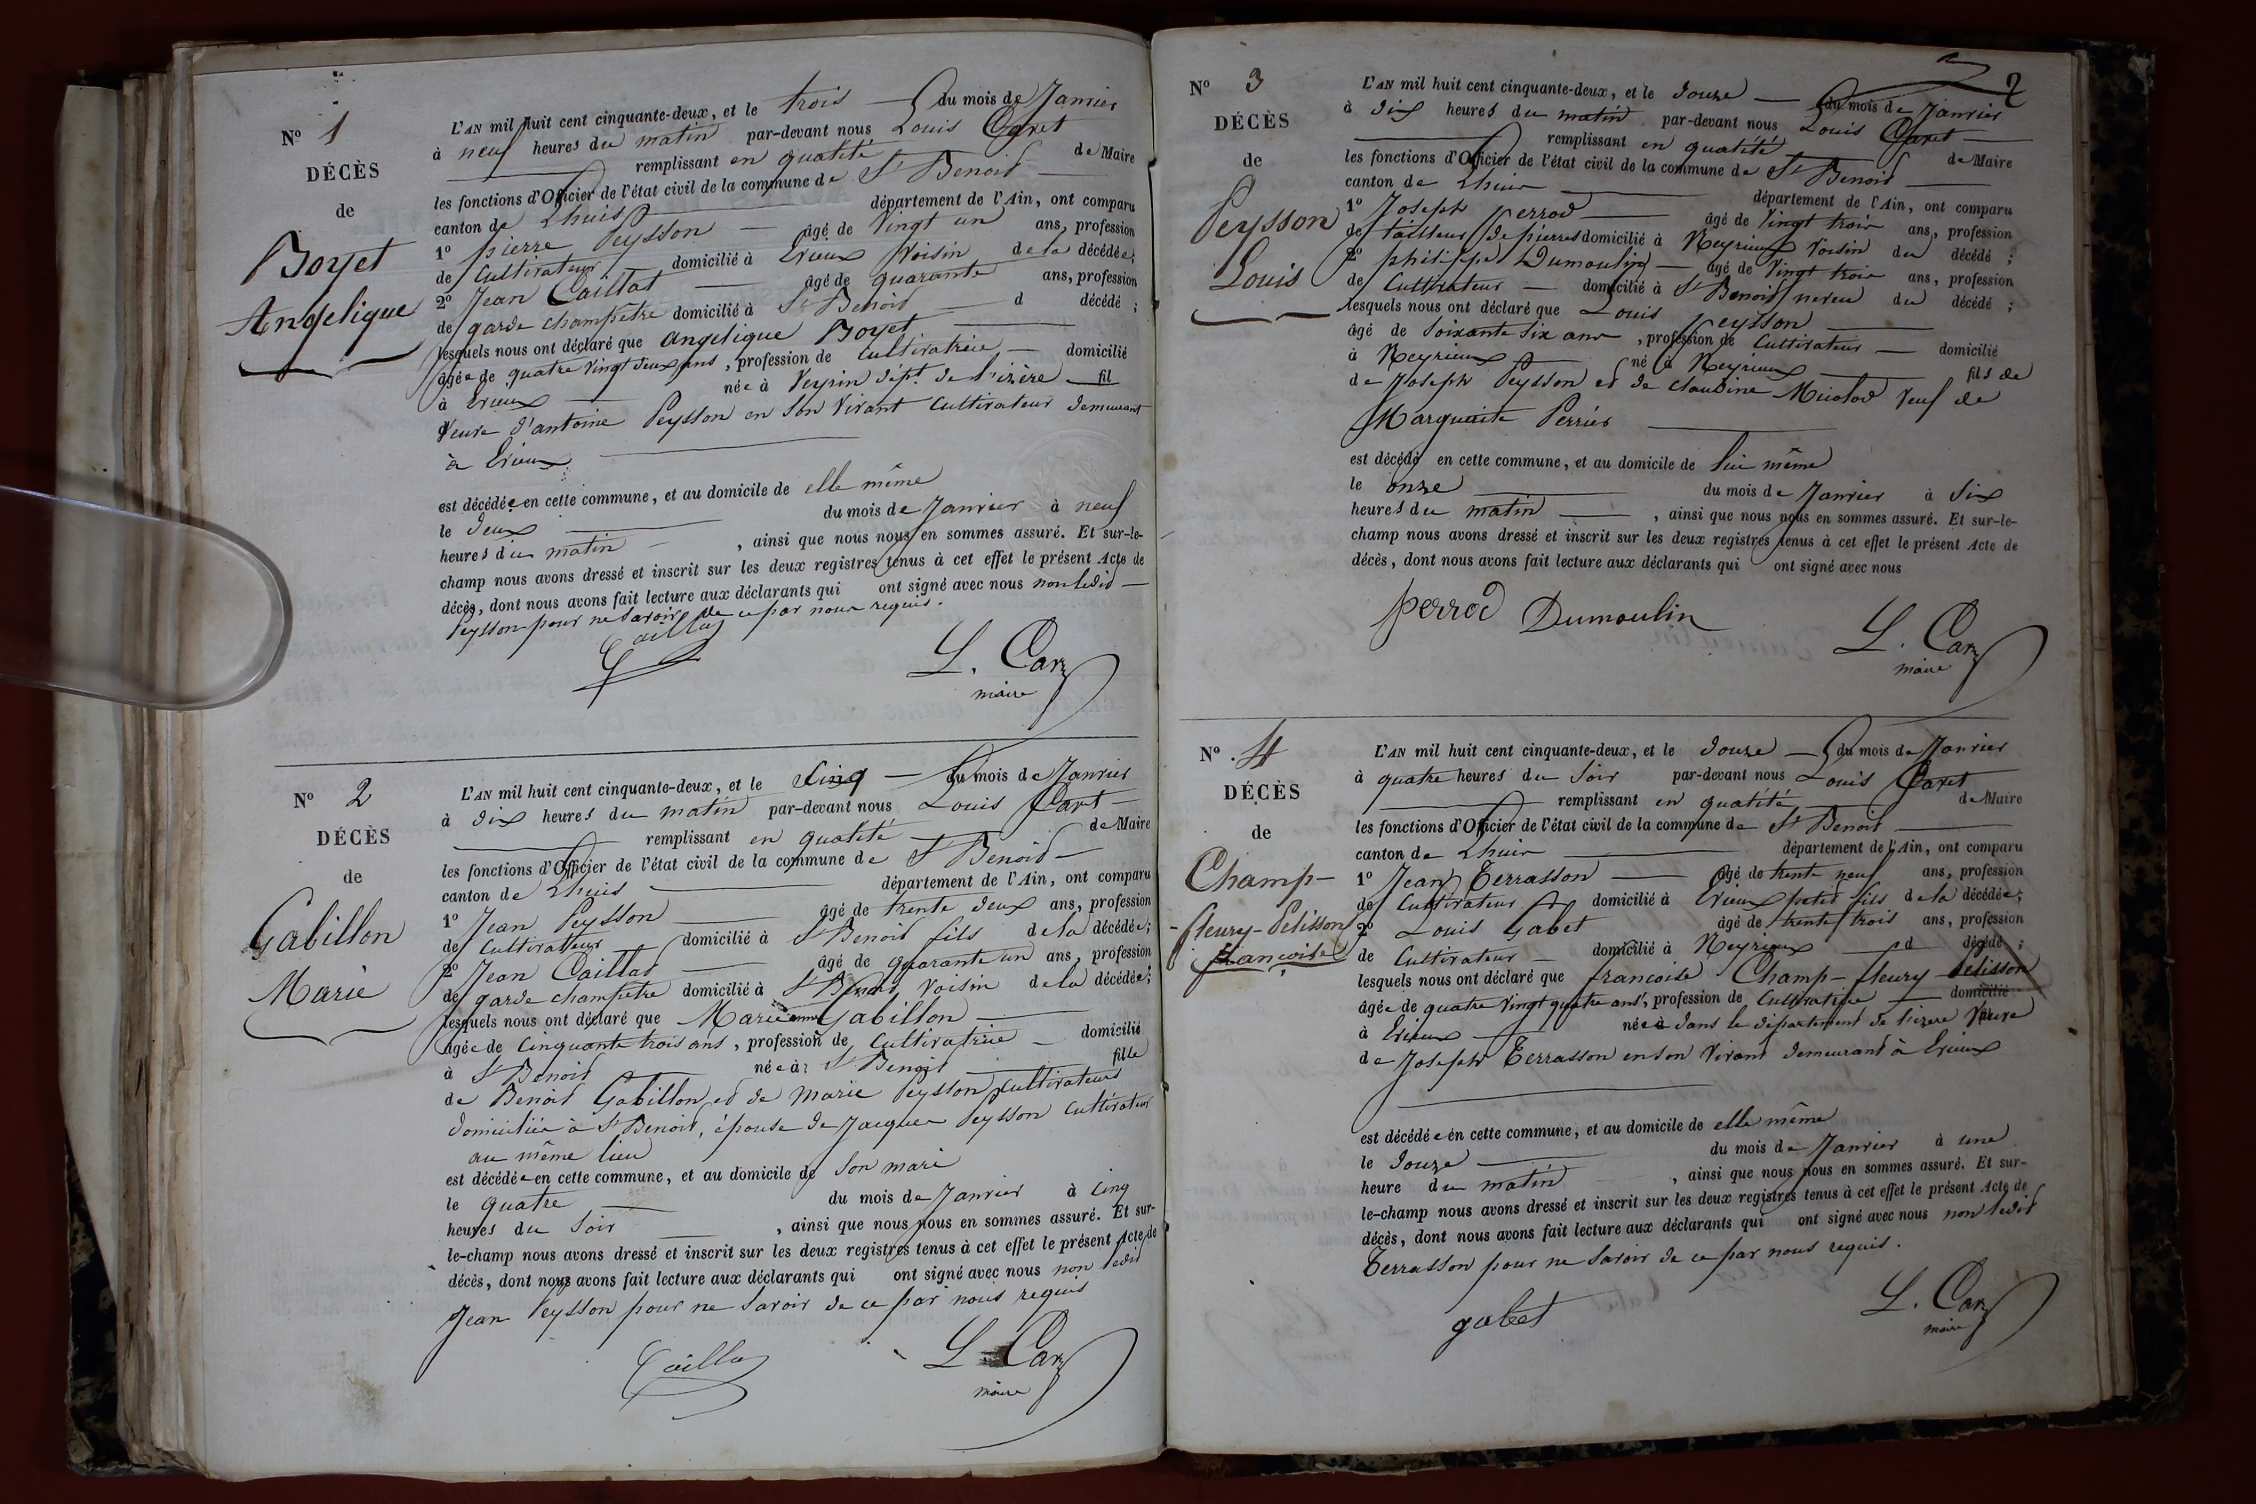 N° 1
DÉCÈS
de
Boyet
Angelique
L'AN mil huit cent cinquante-deux, et le trois du mois de Janvier
à neuf heures du matin par-devant nous Louis Caret
remplissant en qualité de Maire
les fonctions d'Officier de l'état civil de la commune de St Benoit
canton de Lhuis département de l'Ain, ont comparu
1° pierre Peysson âgé de Vingt un ans, profession
de Cultivateur domicilié à Evieux Voisin de la décédée;
2° Jean Caillat âgé de quarante ans, profession
de garde champêtre domicilié à St Benoit d décédé ;
lesquels nous ont déclaré que angelique Boyet
âgée de quatre Vingt deux ans, profession de Cultivatrice domicilié
à Evieux née à Veyrin dépt. de l'isère fil
Veuve d'antoine Peysson en Son Vivant Cultivateur demeurant
à Evieux
est décédée en cette commune, et au domicile de elle même
le deux du mois de Janvier à neuf
heures du matin, ainsi que nous nous en sommes assuré. Et sur-le-
champ nous avons dressé et inscrit sur les deux registres tenus à cet effet le présent Acte de
décès, dont nous avons fait lecture aux déclarants qui ont signé avec nous non ledit
Peysson pour ne Savoir de ce par nous requis.
Caillat
L. Caret
maire
N° 2
DÉCÈS
de
Gabillon
Marie
L'AN mil huit cent cinquante-deux, et le Cinq du mois de Janvier
à dix heures du matin par-devant nous Louis Caret
remplissant en qualité de Maire
les fonctions d'Officier de l'état civil de la commune de St Benoit
canton de Lhuis département de l'Ain, ont comparu
1° Jean Peysson âgé de trente deux ans, profession
de Cultivateur domicilié à St Benoit fils de la décédée;
2° Jean Caillat âgé de quarante un ans, profession
de garde champêtre domicilié à St Benoit Voisin de la décédée;
lesquels nous ont déclaré que Marie anne Gabillon
âgée de Cinquante trois ans, profession de Cultivatrice domicilié
à St Benoit née à St Benoit fille
de Benoit Gabillon et de Marie Peysson Cultivateurs
domiciliés à St Benoit, épouse de Jacques Peysson Cultivateur
au même lieu
est décédée en cette commune, et au domicile de Son mari
le quatre du mois de Janvier à Cinq
heures du Soir, ainsi que nous nous en sommes assuré. Et sur-
le-champ nous avons dressé et inscrit sur les deux registres tenus à cet effet le présent Acte de
décès, dont nous avons fait lecture aux déclarants qui ont signé avec nous non ledit
Jean Peysson pour ne Savoir de ce par nous requis
Caillat
L. Caret
maire
2
N° 3
DÉCÈS
de
Peysson
Louis
L'AN mil huit cent cinquante-deux, et le douze du mois de Janvier
à dix heures du matin par-devant nous Louis Caret
remplissant en qualité de Maire
les fonctions d'Officier de l'état civil de la commune de St Benoit
canton de Lhuis département de l'Ain, ont comparu
1° Joseph Perrod âgé de Vingt trois ans, profession
de tailleur de pierres domicilié à Neyrieux Voisin du décédé ;
2° philippe Dumoulin âgé de Vingt trois ans, profession
de Cultivateur domicilié à St Benoit neveu du décédé ;
lesquels nous ont déclaré que Louis Peysson
âgé de Soixante Six ans, profession de Cultivateur domicilié
à Neyrieux né à Neyrieux fils de
de Joseph Peysson et de Claudine Micolod Veuf de
Marguerite Perrier
est décédé en cette commune, et au domicile de lui même
le onze du mois de Janvier à Six
heures du matin, ainsi que nous nous en sommes assuré. Et sur-le-
champ nous avons dressé et inscrit sur les deux registres tenus à cet effet le présent Acte de
décès, dont nous avons fait lecture aux déclarants qui ont signé avec nous
Perrod Dumoulin
L. Caret
maire
N° 4
DÉCÈS
de
Champ-
-fleury-Pelisson
francoise
L'AN mil huit cent cinquante-deux, et le douze du mois de Janvier
à quatre heures du Soir par-devant nous Louis Caret
remplissant en qualité de Maire
les fonctions d'Officier de l'état civil de la commune de St Benoit
canton de Lhuis département de l'Ain, ont comparu
1° Jean Terrasson âgé de trente neuf ans, profession
de Cultivateur domicilié à Evieux petit fils de la décédée;
2° Louis Gabet âgé de trente trois ans, profession
de Cultivateur domicilié à Neyrieux d décédé ;
lesquels nous ont déclaré que francoise Champ-fleury-Pelisson
âgée de quatre Vingt quatre ans, profession de Cultivatrice domicilié
à Evieux née à dans le département de l'izere Veuve
de Joseph Terrasson en son Vivant demeurant à Evieux
est décédée en cette commune, et au domicile de elle même
le douze du mois de Janvier à une
heure du matin, ainsi que nous nous en sommes assuré. Et sur-
le-champ nous avons dressé et inscrit sur les deux registres tenus à cet effet le présent Acte de
décès, dont nous avons fait lecture aux déclarants qui ont signé avec nous non ledit
Terrasson pour ne Savoir de ce par nous requis.
gabet
L. Caret
maire